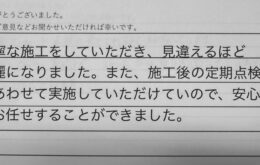 がとうございました。
ご意見などお聞かせいただければ幸いです。
寧な施工をしていただき、見違えるほど
麗になりました。また、施工後の定期点検
あわせて実施していただけていので、安心
お任せすることができました。